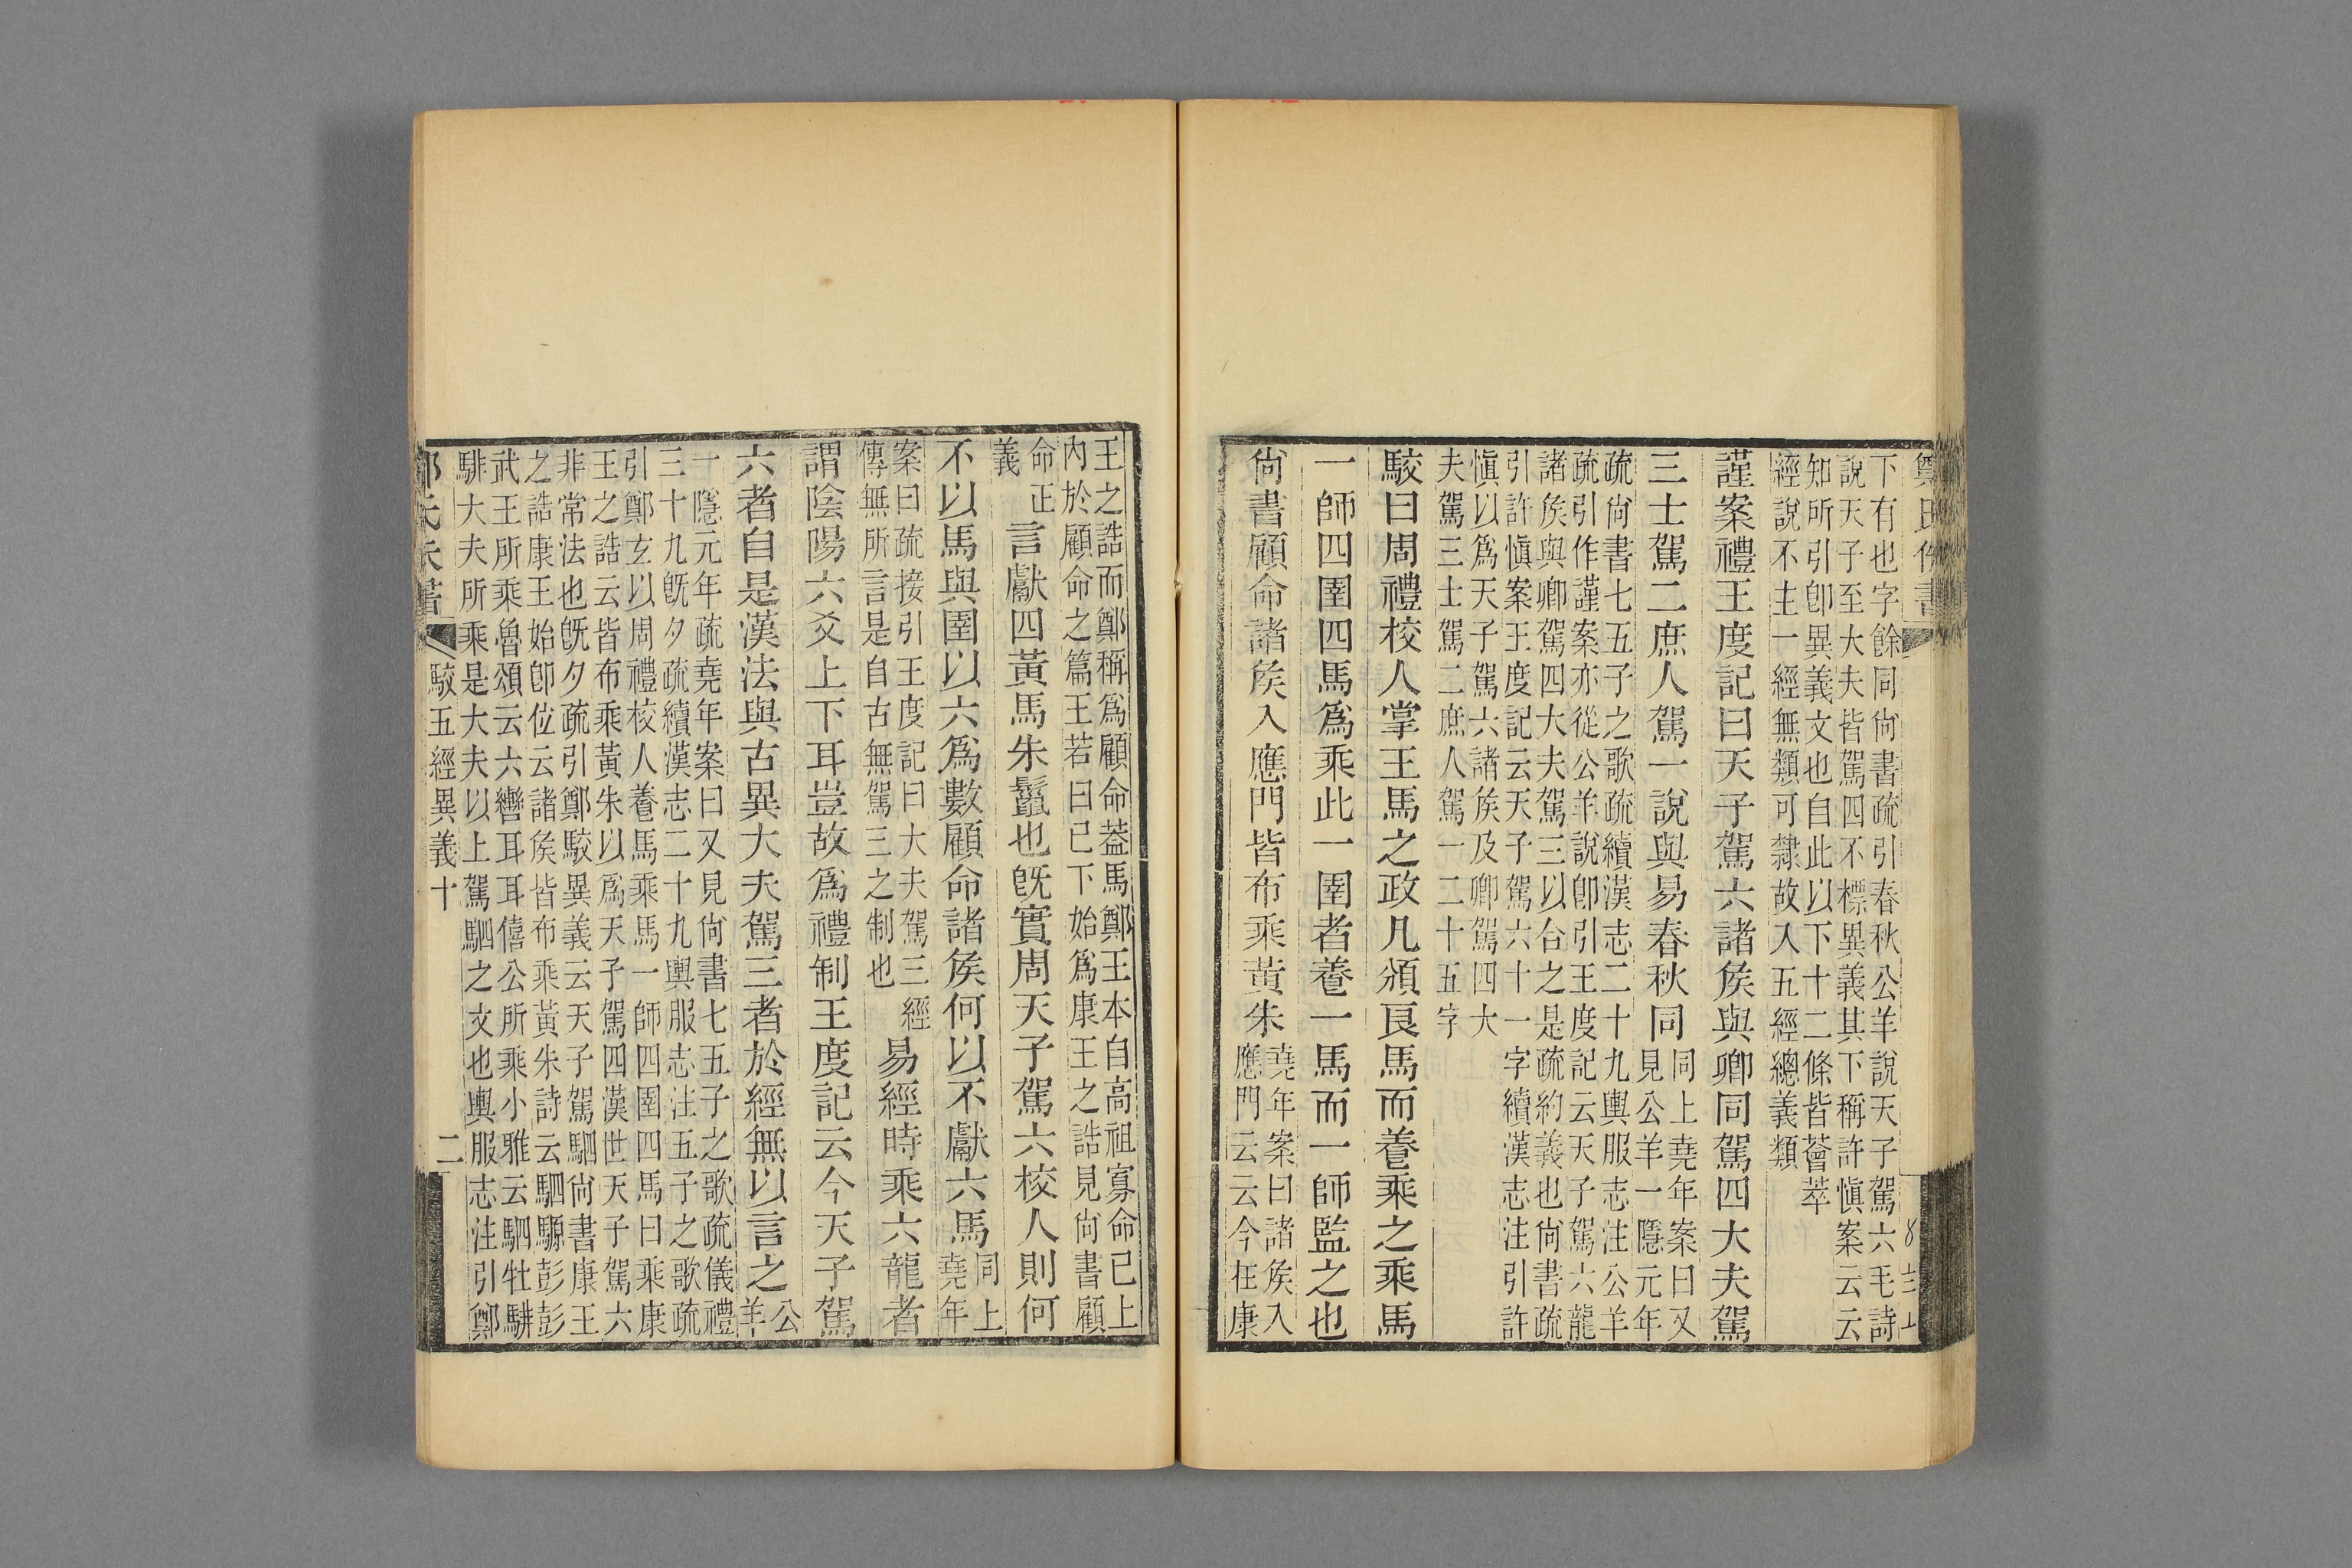 鄭氏佚書
下有也字餘同尚書疏引春秋公羊說天子駕六毛詩
說天子至大夫皆駕四不標異義其下稱許慎案云云
知所引卽異義文也自此以下十二條皆薈萃
經說不主一經無類可隸故入五經總義類
謹案禮王度記曰天子駕六諸侯與卿同駕四大夫駕
三士駕二庶人駕一說與易春秋同
同上堯年案曰又
見公羊一隱元年
疏尚書七五子之歌疏續漢志二十九輿服志注公羊
疏引作謹案亦從公羊說卽引王度記云天子駕六龍
諸侯與卿駕四大夫駕三以合之是疏約義也尚書疏
引許慎案王度記云天子駕六十一字續漢志注引許
慎以爲天子駕六諸侯及卿駕四大
夫駕三士駕二庶人駕一二十五字
駮曰周禮校人掌王馬之政凡頒良馬而養乘之乘馬
一師四圉四馬爲乘此一圉者養一馬而一師監之也
尚書顧命諸侯入應門皆布乘黃朱
堯年案曰諸侯入
應門云云今在康
王之誥而鄭稱爲顧命葢馬鄭王本自高祖寡命已上
內於顧命之篇王若曰已下始爲康王之誥見尚書顧
命正
義
言獻四黃馬朱鬣也旣實周天子駕六校人則何
不以馬與圉以六爲數顧命諸侯何以不獻六馬
同上
堯年
案曰疏接引王度記曰大夫駕三經
傳無所言是自古無駕三之制也
易經時乘六龍者
謂陰陽六爻上下耳豈故爲禮制王度記云今天子駕
六者自是漢法與古異大夫駕三者於經無以言之
公
羊
一隱元年疏堯年案曰又見尚書七五子之歌疏儀禮
三十九旣夕疏續漢志二十九輿服志注五子之歌疏
引鄭玄以周禮校人養馬乘馬一師四圉四馬曰乘康
王之誥云皆布乘黃朱以爲天子駕四漢世天子駕六
非常法也旣夕疏引鄭駮異義云天子駕駟尚書康王
之誥康王始卽位云諸侯皆布乘黃朱詩云駟騵彭彭
武王所乘魯頌云六轡耳耳僖公所乘小雅云駟牡騑
騑大夫所乘是大夫以上駕駟之文也輿服志注引鄭
鄭氏佚書 駮五經異義十 二